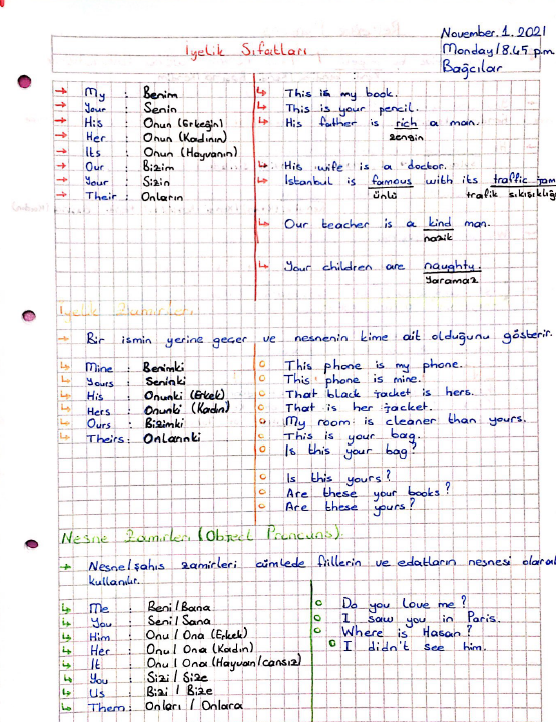 November.1.2021
Iyelik Sıfatları
Monday/8.45 p.m
Bağcılar
My : Benim
Your : Senin
His : Onun (Erkeğin)
Her : Onun (Kadının)
Its : Onun (Hayvanın)
Our : Bizim
Your : Sizin
Their : Onların
This is my book.
This is your pencil.
His father is rich a man.
zengin
His wife is a doctor.
Istanbul is famous with its traffic jam
ünlü trafik sıkışıklığı
Our teacher is a kind man.
nazik
Your children are naughty.
yaramaz
Iyelik Zamirleri
Bir ismin yerine geçer ve nesnenin kime ait olduğunu gösterir.
Mine : Benimki
Yours : Seninki
His : Onunki (Erkek)
Hers : Onunki (Kadın)
Ours : Bizimki
Theirs : Onlarınki
This phone is my phone.
This phone is mine.
That black jacket is hers.
That is her jacket.
My room is cleaner than yours.
This is your bag.
Is this your bag?
Is this yours?
Are these your books?
Are these yours?
Nesne Zamirleri (Object Pronouns)
Nesne/şahıs zamirleri cümlede fiillerin ve edatların nesnesi olarak
kullanılır.
Me : Beni / Bana
You : Seni / Sana
Him : Onu / Ona (Erkek)
Her : Onu / Ona (Kadın)
It : Onu / Ona (Hayvan/cansız)
You : Sizi / Size
Us : Bizi / Bize
Them : Onları / Onlara
Do you love me?
I saw you in Paris.
Where is Hasan?
I didn't see him.